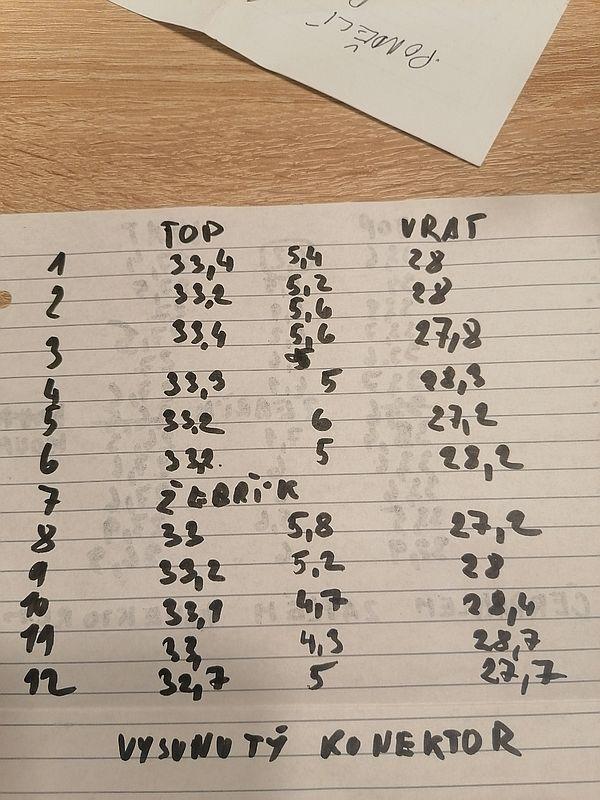 PONDĚLÍ
TOP VRAT
1 33,4 5,4 28
2 33,2 5,2 28
5,6
3 33,4 5,6 27,8
5
4 33,3 5 28,3
5 33,2 6 27,2
6 33,2 5 28,2
7 ŽEBŘÍK
8 33 5,8 27,2
9 33,2 5,2 28
10 33,1 4,7 28,4
11 33, 4,3 28,7
12 32,7 5 27,7
VYSUNUTÝ KONEKTOR